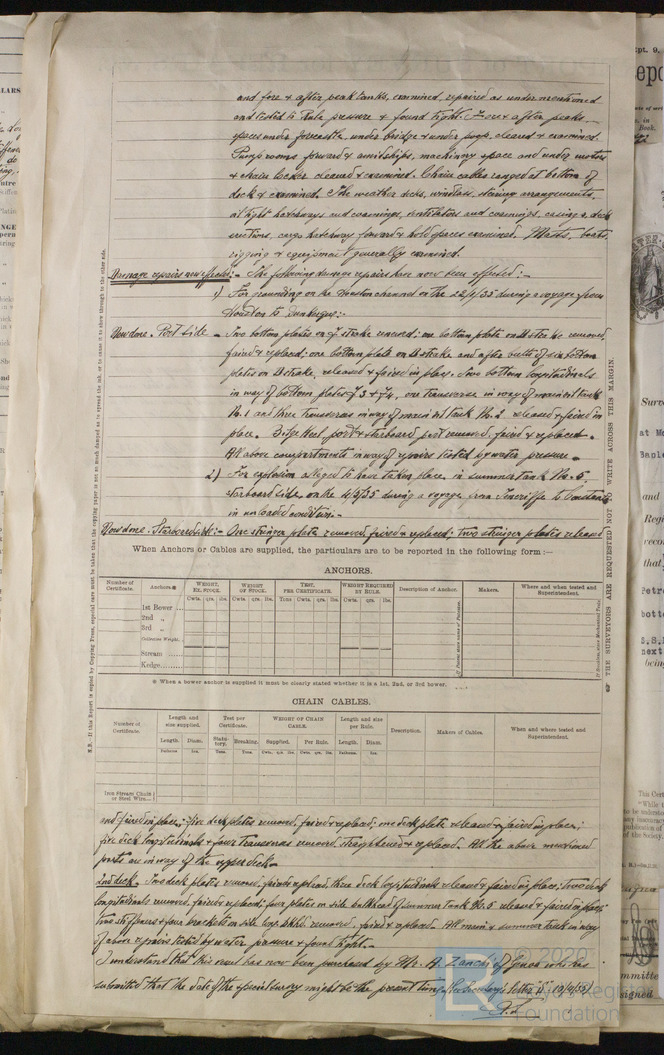 and fore & after peak tanks, examined, repaired as under mentioned
and tested to Rule pressure & found tight. Fore & after peaks
spaces under forecastle, under bridge & under poop, cleared & examined.
Pump rooms forward & amidships, machinery space and under motors
& chain locker cleared & examined. Chain cables ranged at bottom of
dock & examined. The weather decks, windlass, steering arrangements,
oil tight hatchways and coamings, ventilators and coamings, casing & deck
erections, cargo hatchway forward & hold spaces examined. Masts, boats,
rigging & equipment generally examined.
Damage repairs now effected:- The following damage repairs have now been effected:-
1) For grounding on the Houston channel on the 22/1/35 during a voyage from
Houston to Dunkerque:-
Now done. Port side - Two bottom plates on strake renewed; one bottom plate on strake removed,
faired & replaced; one bottom plate on strake and after butts of six bottom
plates on strake, released & faired in place. Two bottom longitudinals
in way of bottom plates 3 & 4, one transverse in way of main oil tank
No. 1 and three transverses in way of main oil tank No. 2 released & faired in
place. Bilge keel port & starboard part removed, faired & replaced.
All above compartments in way of repairs tested by water pressure.
2) For explosion alleged to have taken place in summer tank No. 5
starboard side on the 4/5/35 during a voyage from Teneriffe to Constanza
in unloaded condition.
Now done. Starboard side:- One stringer plate removed, faired & replaced; two stringer plates released
When Anchors or Cables are supplied, the particulars are to be reported in the following form:—
ANCHORS.
Number of Certificate. Anchors. WEIGHT, EX. STOCK. WEIGHT OF STOCK. TEST, PER CERTIFICATE. WEIGHT REQUIRED BY RULE. Description of Anchor. Makers. Where and when tested and Superintendent.
Cwts. qrs. lbs. Cwts. qrs. lbs. Tons Cwt. qrs. lbs. Cwts. qrs. lbs.
1st Bower ...
2nd „
3rd „
Collective Weight.
Stream
Kedge
※ When a bower anchor is supplied it must be clearly stated whether it is a 1st, 2nd, or 3rd bower.
CHAIN CABLES.
Number of Certificate. Length and size supplied. Test per Certificate. WEIGHT OF CHAIN CABLE. Length and size per Rule. Description. Makers of Cables. When and where tested and Superintendent.
Length. Diam. Statutory. Breaking. Supplied. Per Rule. Length. Diam.
Fathoms Ins. Tons. Tons Cwts. qrs. lbs. Cwts. qrs. lbs. Fathoms. Ins.
Iron Stream Chain or Steel Wire
and faired in place; five deck plates removed, faired & replaced; one deck plate released & faired in place;
five deck longitudinals & four transverses removed straightened & replaced. All the above mentioned
parts are in way of the upper deck.
2nd deck. Two deck plates removed, faired & replaced three deck longitudinals released & faired in place; two deck
longitudinals removed, faired & replaced; four plates on side bulkhead of summer tank No. 5 released & faired in place;
two stiffeners & four brackets on side long. bkhd. removed, faired & replaced. All main & summer tanks in way
of above repairs tested by water pressure & found tight.
I understand that this vessel has now been purchased by Mr. A. Zanchi of Genoa who has
submitted that the date of the special survey might be the present time (Secretary's letter
© 2020
Lloyd's Register
Foundation
THE SURVEYORS ARE REQUESTED NOT TO WRITE ACROSS THIS MARGIN.